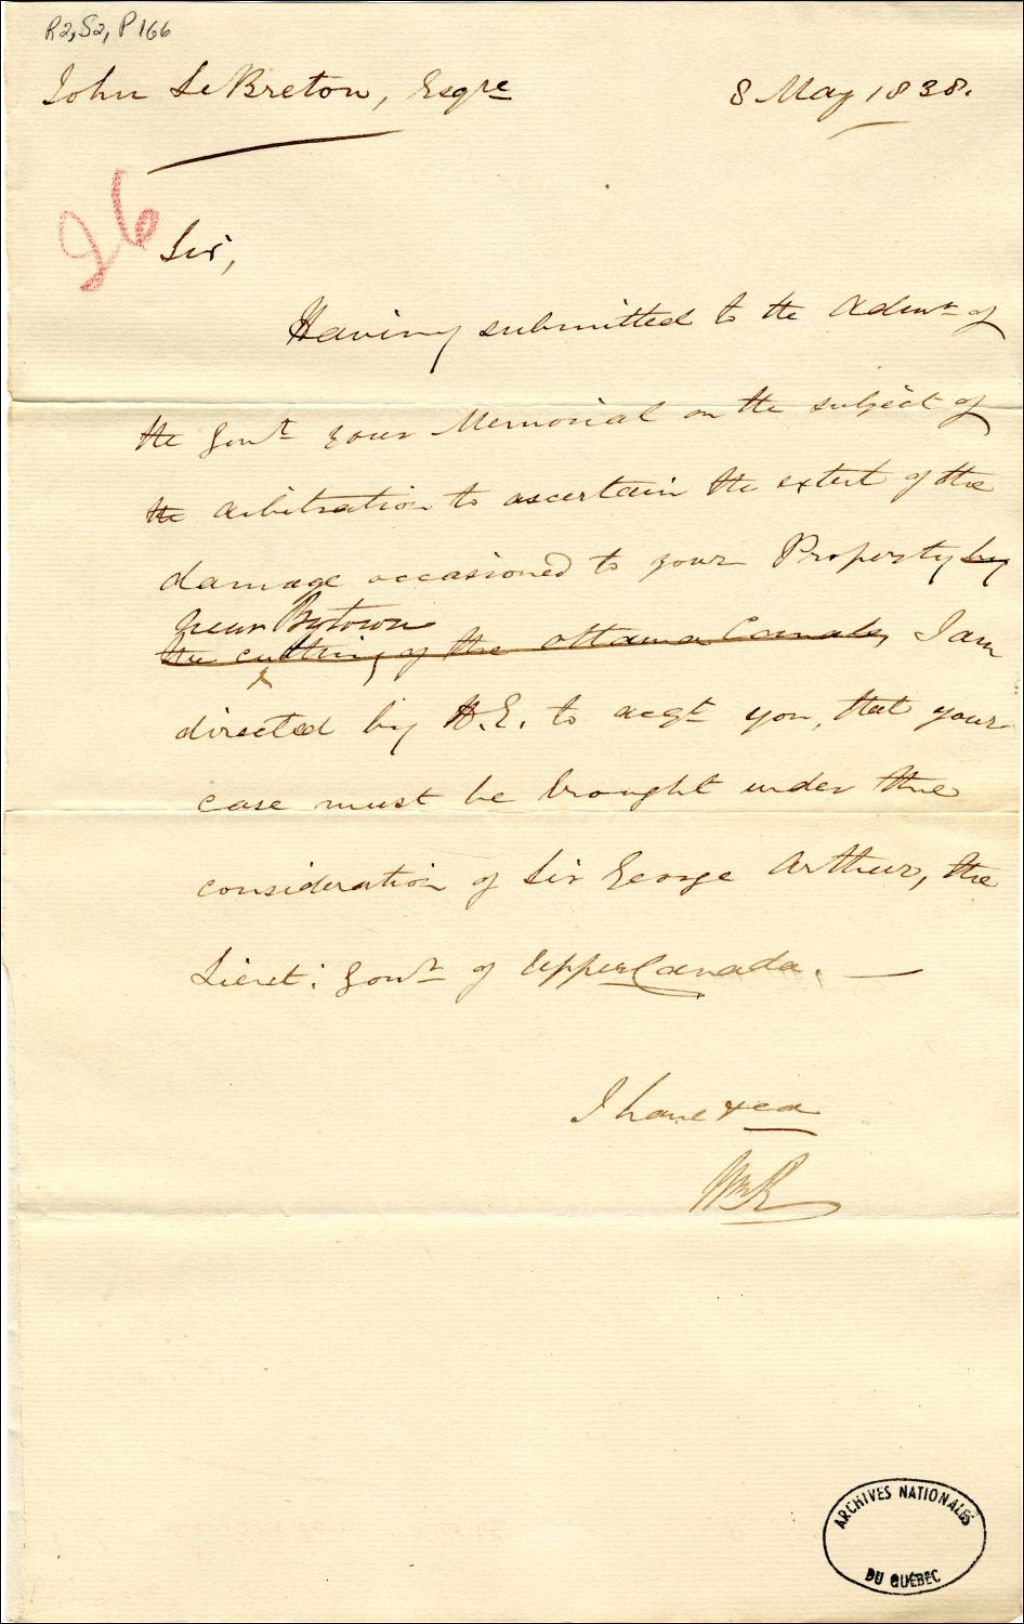 R2, S2, P166
John LeBreton, Esqre
8 May 1838.
26
Sir,
Having submitted to the Admr of
the Govt your Memorial on the subject of
the arbitration to ascertain the extent of the
damage occasioned to your Property by
near Bytown
the cutting of the Ottawa Canal, I am
directed by H.E. to acqt you, that your
case must be brought under the
consideration of Sir George Arthur, the
Lieut: Govr of Upper Canada. —
I have &ca
ARCHIVES NATIONALES
DU QUÉBEC